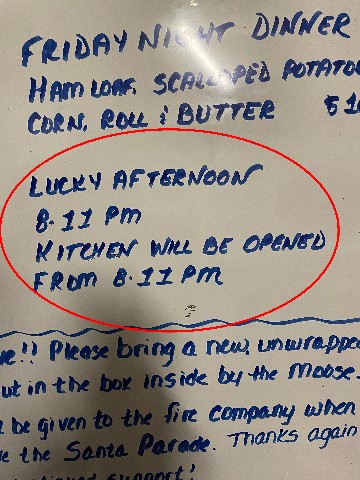 FRIDAY NIGHT DINNER
HAM LOAF, SCALLOPED POTATO
CORN, ROLL & BUTTER $1
LUCKY AFTERNOON
8-11 PM
KITCHEN WILL BE OPENED
FROM 8-11 PM
ve!! Please bring a new, unwrapped
ut in the box inside by the Moose.
be given to the fire company when
e the Santa Parade. Thanks again
support!